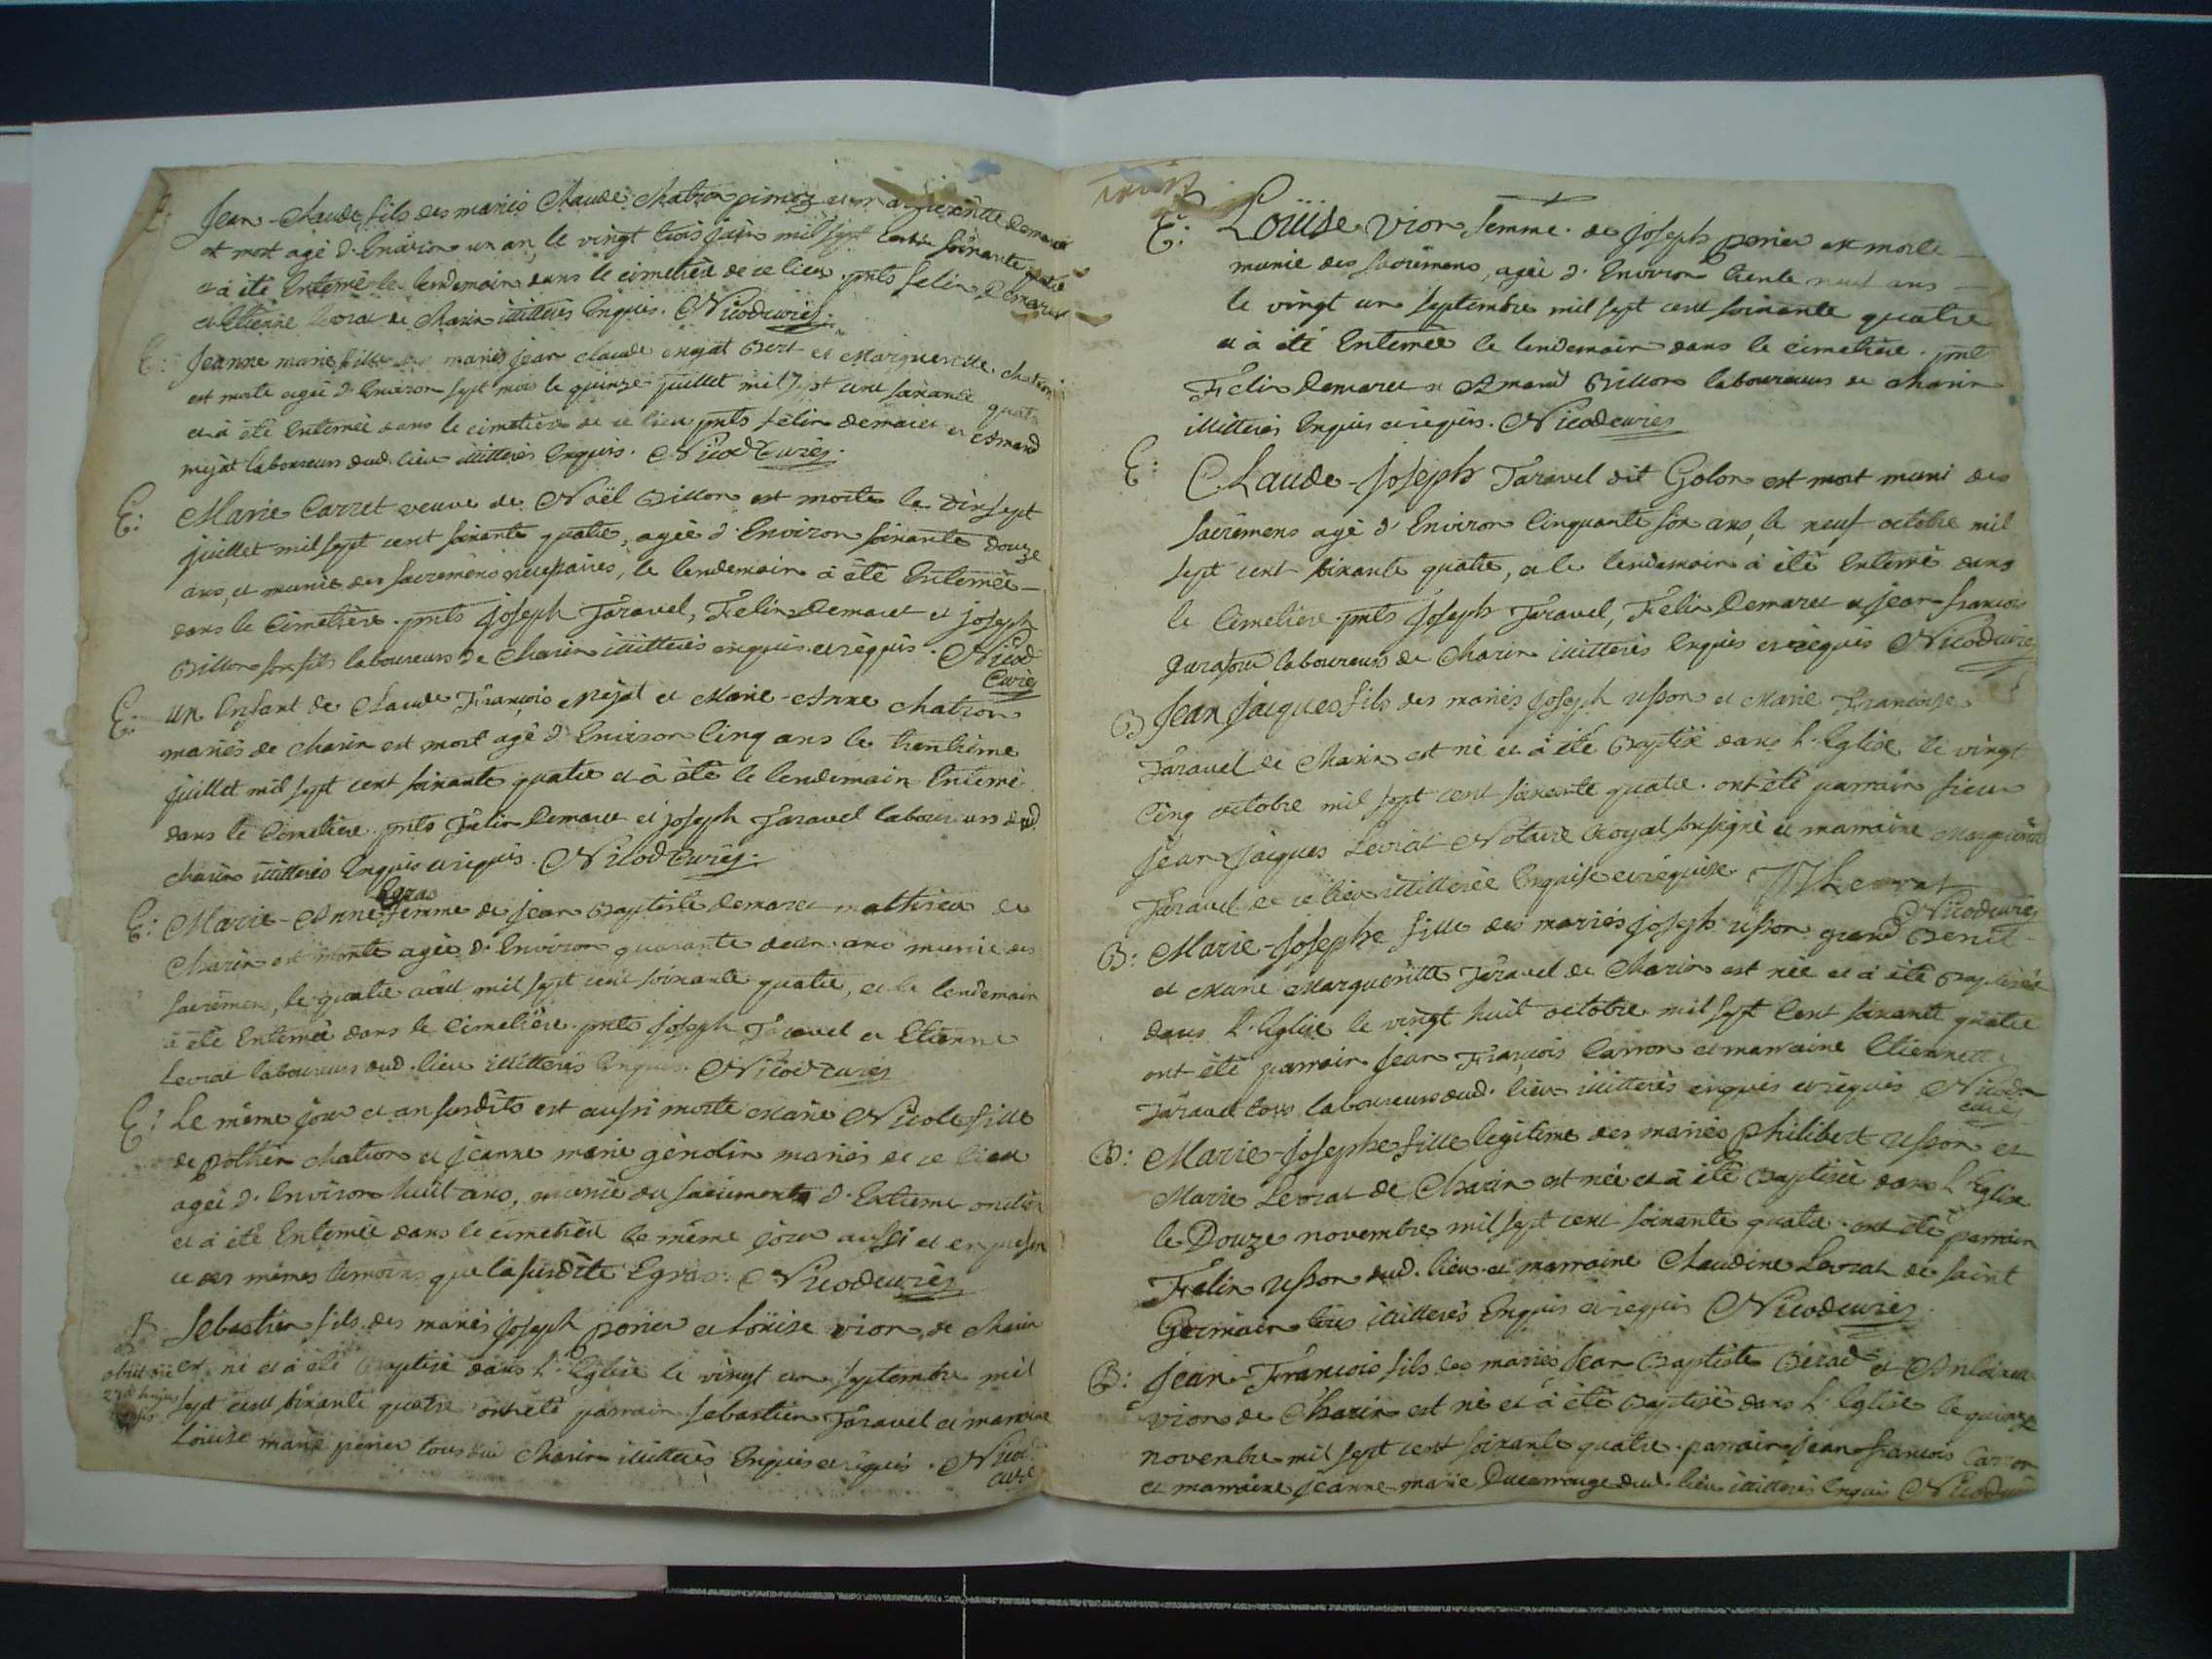 E: Jean-Claude fils des mariés Claude Chatron pimoz et Demaret
et mort agé d'Environ un an, le vingt trois juin mil sept cent soixante quatre
et à été Enterré le lendemain dans le cimetière de ce lieu. pnts felix Demaret
et Etienne Levrat de Charix illitterés Enquis. Nicod curé
E: Jeanne marie fille des mariés jean claude mejat Bert et Margueritte chatron
est morte agée d'Environ sept mois le quinze juillet mil sept cent soixante quatre
et à été Enterrée dans le cimetière de ce lieu pnts félix demaret et Amand
mejat laboureurs dud. lieu illitterés Enquis. Nicod Curé
E: Marie Carret veuve de Noël Billon est morte le dix sept
juillet mil sept cent soixante quatre, agée d'Environ soixante douze
ans, et munie des sacremens necessaires, le lendemain à été Enterrée
dans le Cimetière. pnts joseph Taravel, Félix Demaret et joseph
Billon son fils laboureurs de Charix illitterés enquis et requis. Nicod
Curé
E: un Enfant de Claude François Mejat et Marie-Anne chatron
mariés de charix est mort agé d'Environ Cinq ans le trentième
juillet mil sept cent soixante quatre et à été le lendemain Enterré
dans le Cimetière. pnts Félix Demaret et joseph Taravel laboureurs dud.
charix illitterés Enquis et requis. Nicod Curé
Egraz
E: Marie-Anne femme de jean Baptiste demaret mathieu de
Charix est morte agée d'Environ quarante deux ans munie des
sacrémens, le quatre août mil sept cent soixante quatre, et le lendemain
à été Enterrée dans le Cimetière. pnts joseph Taravel et Etienne
Levrat laboureurs dud. lieu illitterés Enquis. Nicod Curé
E: Le même jour et an susdits est aussi morte Marie Nicole fille
de pothin chatron et jeanne marie génolin mariés de ce lieu
agée d'Environ huit ans, munie du sacrement d'Extreme onction
et à été Enterrée dans le cimetière le même jour aussi et en presen
ce des mêmes temoins que la susdite Egraz. Nicod curé
B Sebastien fils des mariés joseph perier et Loüise vion, de charix
obiit die est né et à été Baptisé dans l'Eglise le vingt un septembre mil
27â hujus sept cent soixante quatre ont été parrain Sebastien Taravel et marraine
Loüise marie perier tous de Charix illitterés Enquis et requis. Nicod
curé
E: Loüise vion femme de joseph perier est morte
munie des sacrémens, agée d'Environ trente neuf ans
le vingt un septembre mil sept cent soixante quatre
et à été Enterrée le lendemain dans le cimetière. pnts
Félix Demaret et Amand Billon laboureurs de charix
illitterés Enquis et requis. Nicod curé
E: Claude-Joseph Taravel dit Golon est mort muni des
sacrémens agé d'Environ Cinquante six ans, le neuf octobre mil
sept cent soixante quatre, et le lendemain à été Enterré dans
le Cimetière. pnts joseph Taravel, Félix Demaret et jean-françois
laboureurs de Charix illitterés Enquis et requis Nicod curé
B Jean jacques fils des mariés joseph usson et Marie Françoise
Taravel de Charix est né et à été Baptisé dans l'Eglise le vingt
Cinq octobre mil sept cent soixante quatre. ont été parrain sieur
jean jacques Levrat Notaire Royal soussigné et marraine Margueritte
Taravel de ce lieu illitterée Enquise et requise. JJ Levrat
Nicod curé
B: Marie-Josephe fille des mariés joseph usson grand Benit
et Marie Margueritte Taravel de Charix est née et à été Baptisée
dans l'Eglise le vingt huit octobre mil sept cent soixante quatre
ont été parrain jean François Carron et marraine Etiennette
Taravel tous laboureurs dud. lieu illitterés enquis et requis Nicod
curé
B: Marie-josephe fille legitime des mariés Philibert usson et
Marie Levrat de Charix est née et à été Baptisée dans l'Eglise
le Douze novembre mil sept cent soixante quatre. ont été parrain
Félix usson dud. lieu. et marraine Claudine Levrat de saint
Germain illitterés Enquis et requis Nicod curé
B: Jean-François fils des mariés Jean Baptiste Berad et Antoinette
vion de Charix est né et à été Baptisé dans l'Eglise le quinze
novembre mil sept cent soixante quatre. parrain jean françois Carron
et marraine jeanne-marie Ducarrouge dud. lieu illitterés Enquis Nicod curé